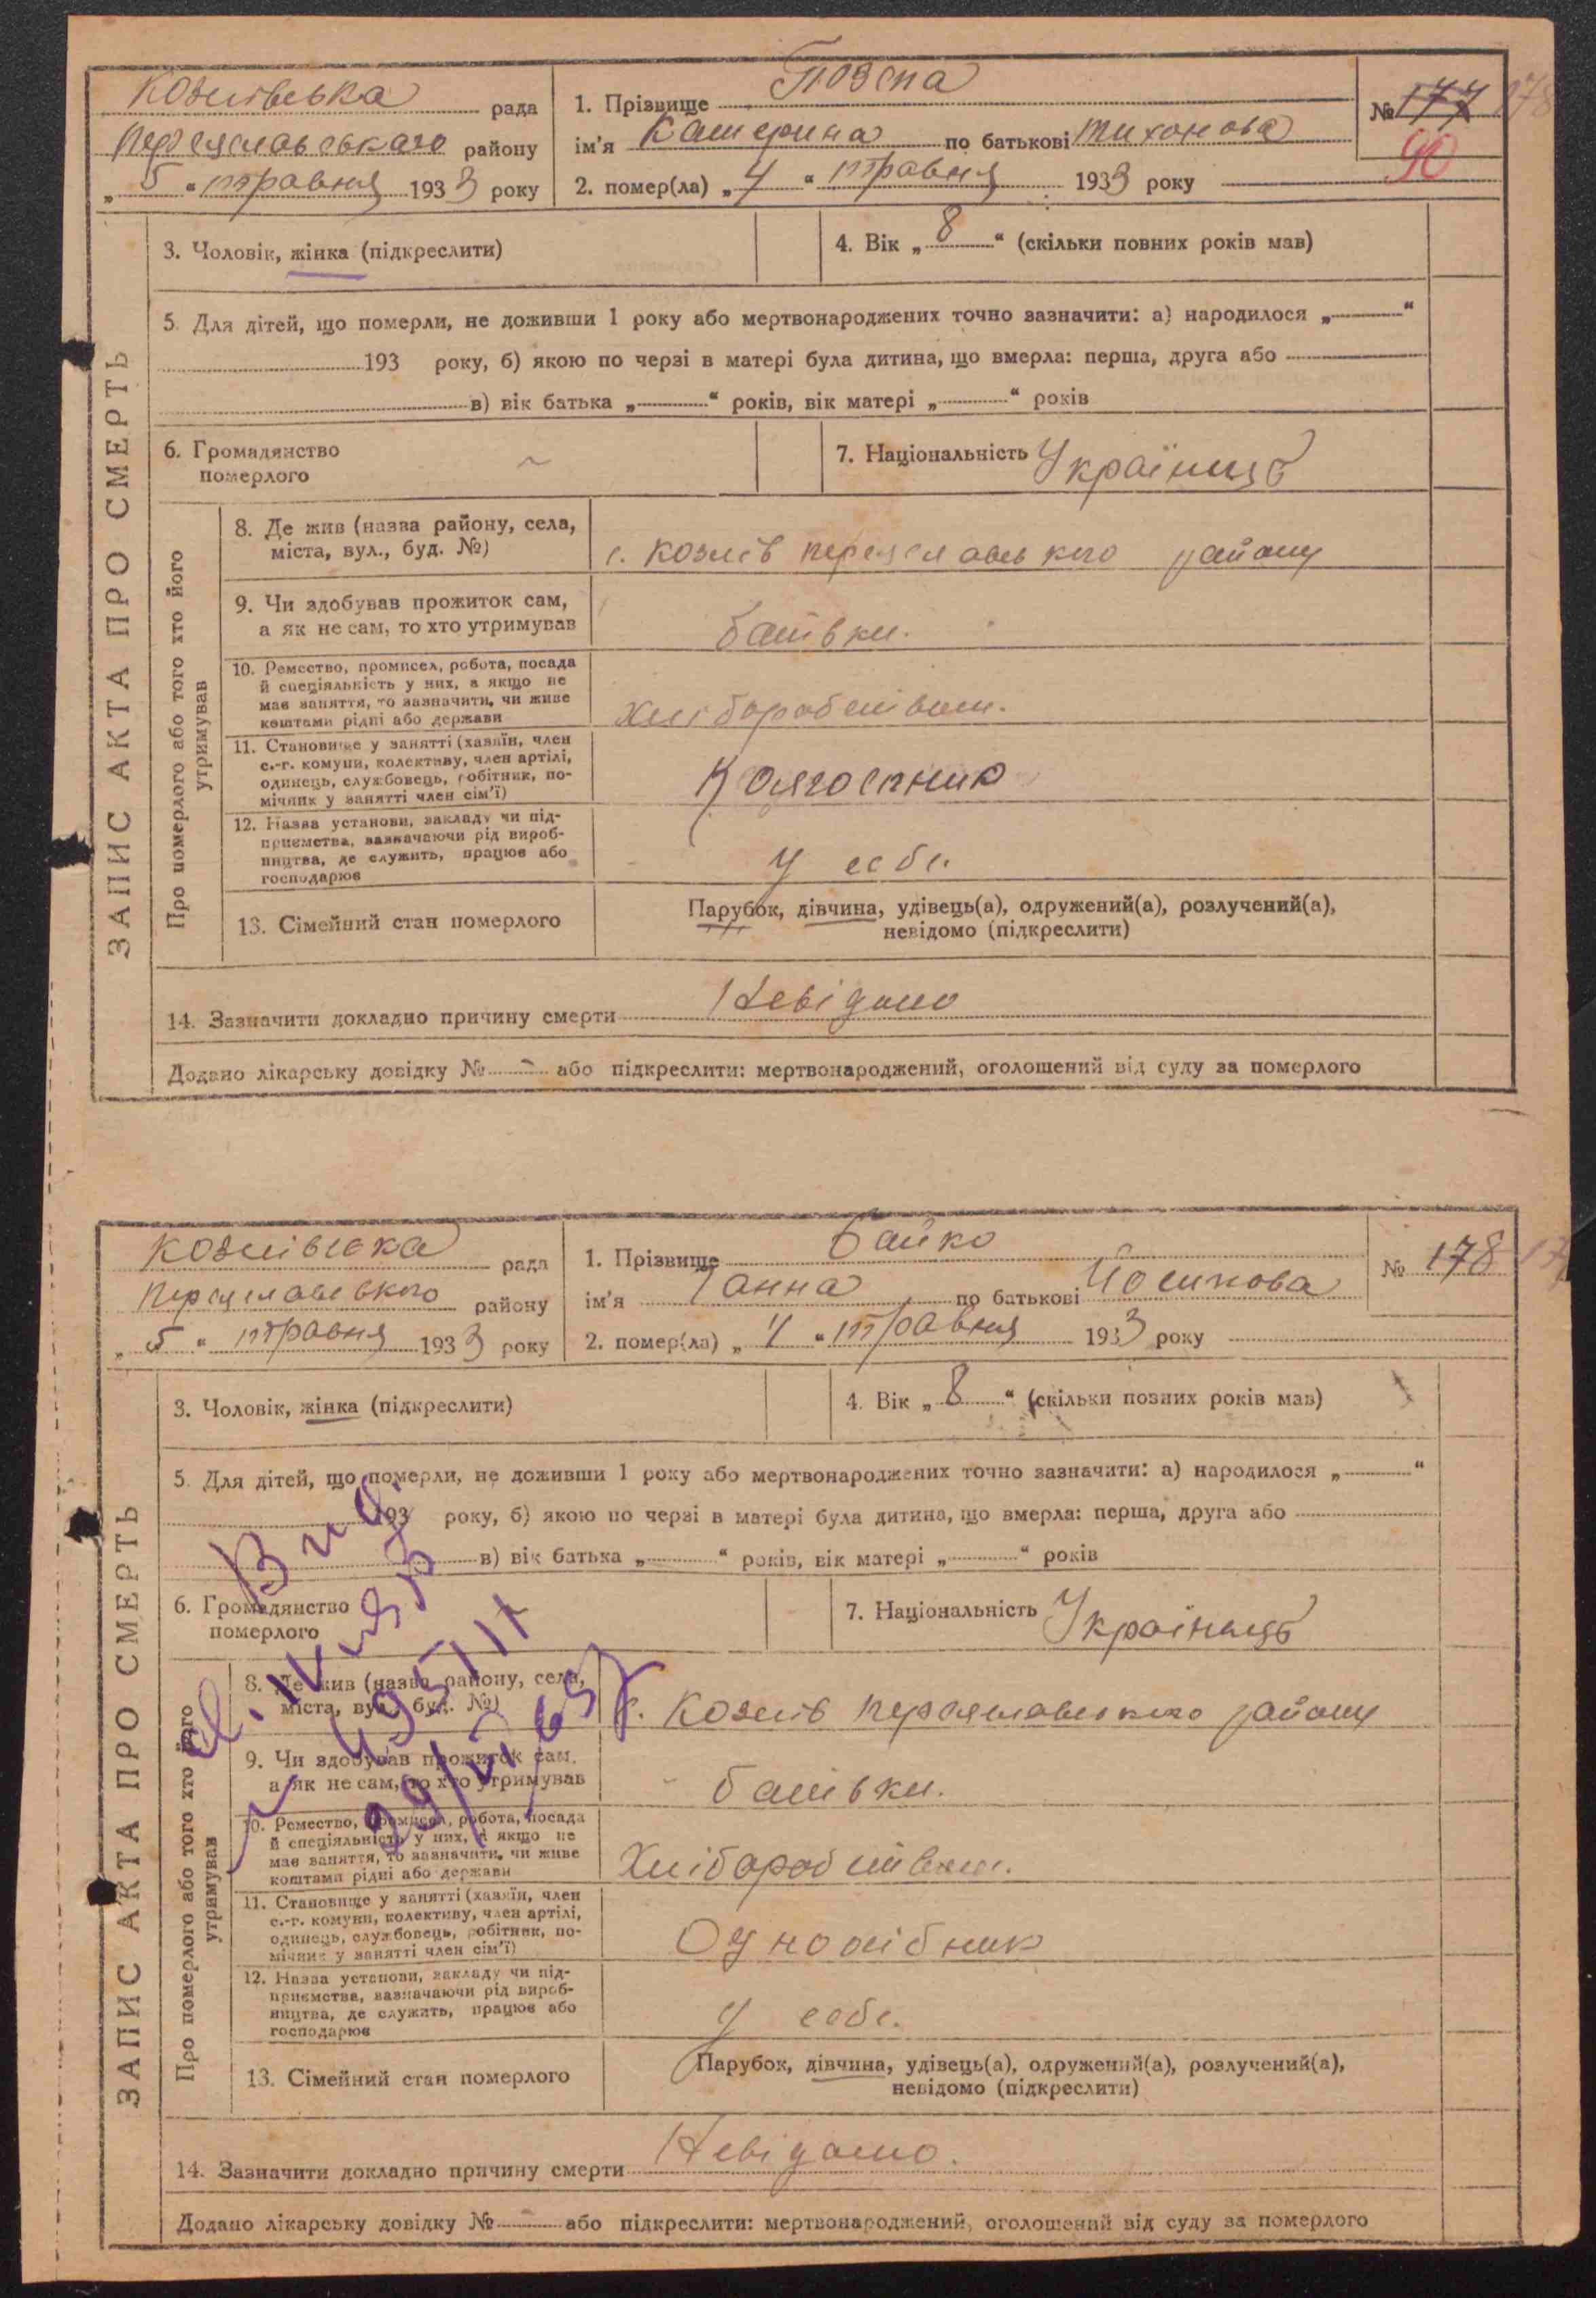 Козлівська рада
Переяславського району
„ 5 “ травня 1933 року
1. Прізвище
ім'я Катерина по батькові Тихонова
2. помер(ла) „ 4 “ травня 1933 року
№ 177 178
90
ЗАПИС АКТА ПРО СМЕРТЬ
3. Чоловік, жінка (підкреслити)
4. Вік „ 8 “ (скільки повних років мав)
5. Для дітей, що померли, не доживши 1 року або мертвонароджених точно зазначити: а) народилося „ — “
193 року, б) якою по черзі в матері була дитина, що вмерла: перша, друга або
в) вік батька „ — “ років, вік матері „ — “ років
6. Громадянство
померлого
7. Національність Українець
Про померлого або того хто його
утримував
8. Де жив (назва району, села,
міста, вул., буд. №)
с. Козлів Переяславського району
9. Чи здобував прожиток сам,
а як не сам, то хто утримував
батьки.
10. Ремество, промисел, робота, посада
й спеціяльність у них, а якщо не
має заняття, то зазначити, чи живе
коштами рідні або держави
11. Становище у занятті (хазяїн, член
с.-г. комуни, колективу, член артілі,
одинець, службовець, робітник, по-
мічник у занятті член сім'ї)
Колгоспник
12. Назва установи, закладу чи під-
приємства, зазначаючи рід вироб-
ництва, де служить, працює або
господарює
у себе.
13. Сімейний стан померлого
Парубок, дівчина, удівець(а), одружений(а), розлучений(а),
невідомо (підкреслити)
14. Зазначити докладно причину смерти Невідомо
Додано лікарську довідку № — або підкреслити: мертвонароджений, оголошений від суду за померлого
Козлівська рада
Переяславського району
„ 5 “ травня 1933 року
1. Прізвище Байко
ім'я Ганна по батькові Йосипова
2. помер(ла) „ 4 “ травня 1933 року
№ 178
ЗАПИС АКТА ПРО СМЕРТЬ
3. Чоловік, жінка (підкреслити)
4. Вік „ 8 “ (скільки повних років мав)
5. Для дітей, що померли, не доживши 1 року або мертвонароджених точно зазначити: а) народилося „ — “
193 року, б) якою по черзі в матері була дитина, що вмерла: перша, друга або
в) вік батька „ — “ років, вік матері „ — “ років
6. Громадянство
померлого
7. Національність Українець
Про померлого або того хто його
утримував
8. Де жив (назва району, села,
міста, вул., буд. №)
с. Козлів Переяславського району
9. Чи здобував прожиток сам,
а як не сам, то хто утримував
батьки.
10. Ремество, промисел, робота, посада
й спеціяльність у них, а якщо не
має заняття, то зазначити, чи живе
коштами рідні або держави
11. Становище у занятті (хазяїн, член
с.-г. комуни, колективу, член артілі,
одинець, службовець, робітник, по-
мічник у занятті член сім'ї)
Одноосібник
12. Назва установи, закладу чи під-
приємства, зазначаючи рід вироб-
ництва, де служить, працює або
господарює
у себе.
13. Сімейний стан померлого
Парубок, дівчина, удівець(а), одружений(а), розлучений(а),
невідомо (підкреслити)
14. Зазначити докладно причину смерти Невідомо.
Додано лікарську довідку № — або підкреслити: мертвонароджений, оголошений від суду за померлого